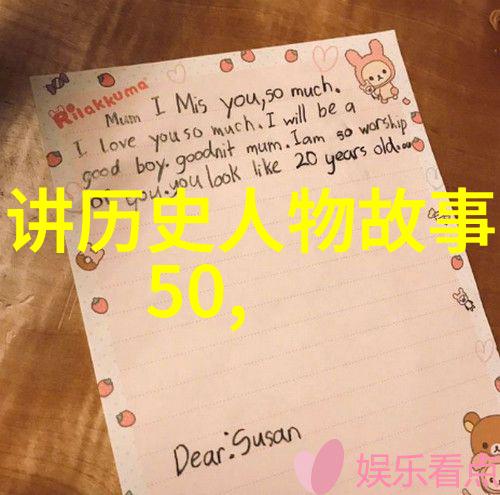 Rilakkuma
Mum I Mis you, so much.
I love you so much. I will be a
good boy. goodnit mum. I am so worship
of you. you look like 20 years old.
讲历史人物故事
50,
Dear: Susan
娱乐看点